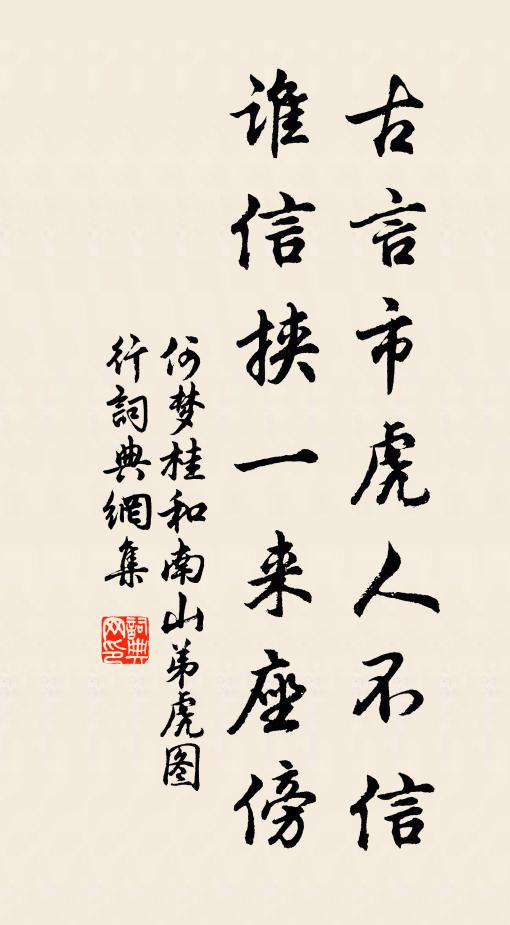 古言市虎人不信
谁信挟一来座傍
何梦桂和南山弟虎图
行詞典網集
詞典网印